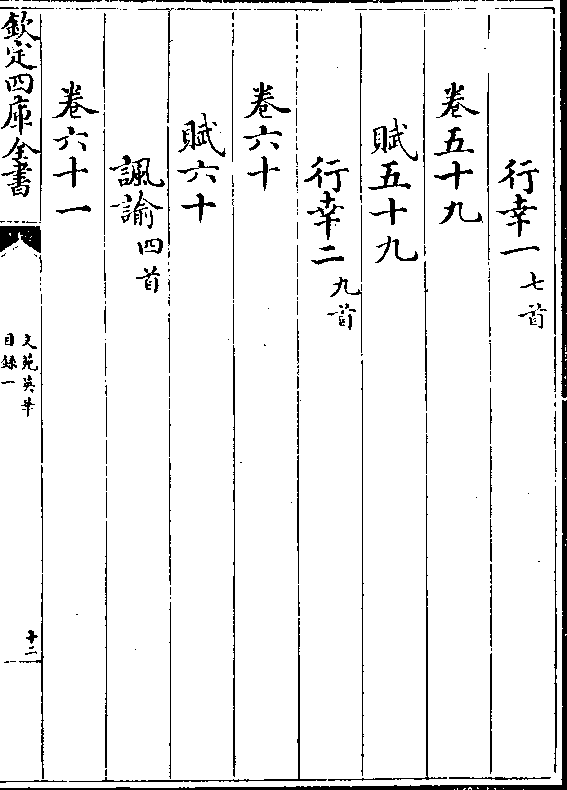 行幸一七首
卷五十九
賦五十九
行幸二九首
卷六十
賦六十
諷諭四首
卷六十一
欽定四庫全書
文苑英華
目錄一
十二